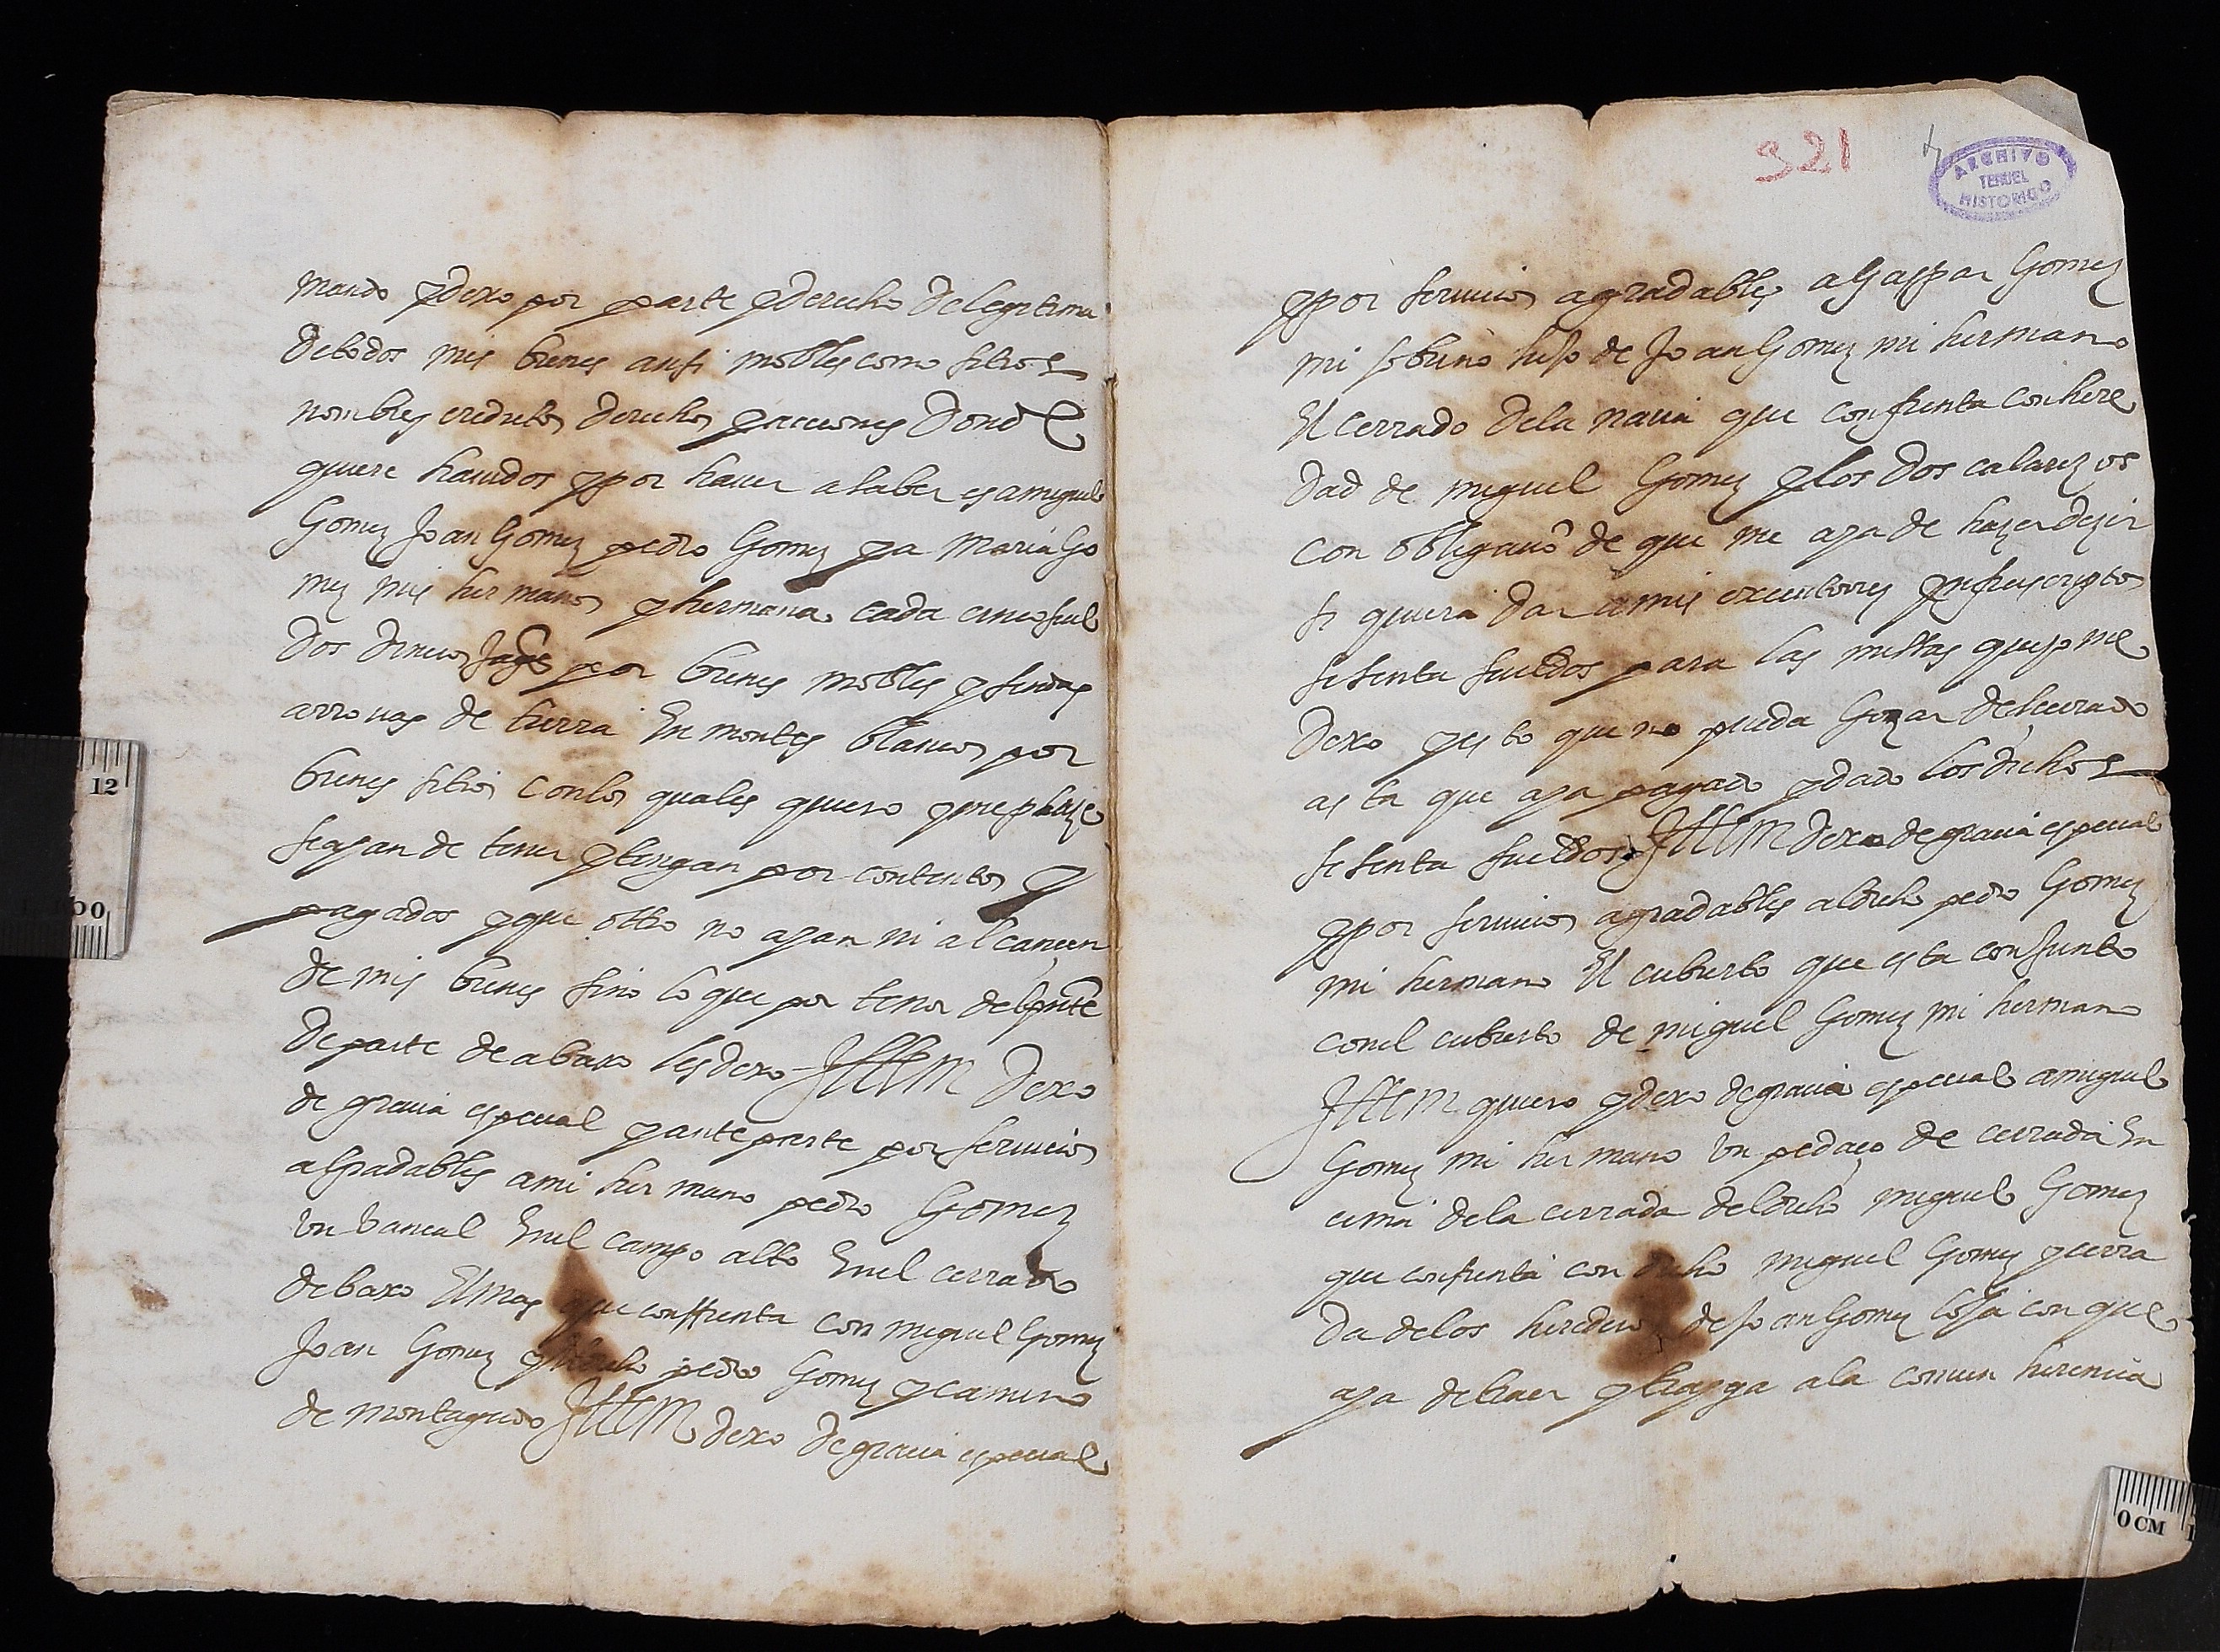 mando y dexo por parte y derecho de legitima
de todos mis bienes ansi mobles como sitios
nombres creditos derechos y acciones donde
quiere hauidos y por hauer a saber es a miguel
Gomez Joan Gomez pedro Gomez y a Maria Go
mez mis hermanos y hermana cada cinco suel
dos dineros Jaqs por bienes mobles y sendas
arrouas de tierra En montes blancos por
bienes sitios con los quales quiero y me plaze
se ayan de tener y tengan por contentos y
pagados y que otro no ayan ni alcancen
de mis bienes sino lo que por tenor del pnte
de parte de abaxo les dexo Ittem dexo
de gracia especial y ante parte por seruicios
agradables a mi hermano pedro Gomez
Un bancal En el campo alto En el cerrado
debaxo El mas que conffrenta con miguel Gomez
Joan Gomez y dicho pedro Gomez y camino
de montagudo Ittem dexo de gracia especial
321
ARCHIVO
TERUEL
HISTORICO
y por seruicios agradables a Gaspar Gomez
mi sobrino hijo de Joan Gomez mi hermano
El cerrado de la naua que confrenta con here
dad de miguel Gomez y los dos calarizos
con obligacion de que me aya de hazer dezir
si quiera dar a mis executores infrascriptos
sesenta sueldos para las missas que yo me
dexo y esto que no pueda Gozar del cerrado
asta que aya pagado y dado los dichos
sesenta sueldos Ittem dexo de gracia especial
y por seruicios agradables al dicho pedro Gomez
mi hermano El cubierto que esta conjunto
con el cubierto de miguel Gomez mi hermano
Ittem quiero y dexo de gracia especial a miguel
Gomez mi hermano Un pedaço de cerrada En
cima de la cerrada del dicho miguel Gomez
que confrenta con dicho miguel Gomez y cerra
da de los herederos de Joan Gomez losa con que
aya de traer y trayga a la comun herencia
12
0 CM